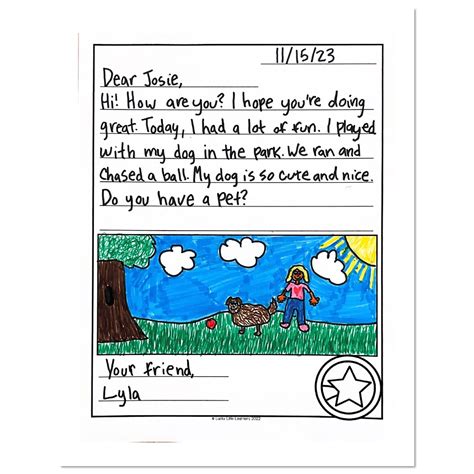 11/15/23
Dear Josie,
Hi! How are you? I hope you're doing
great. Today, I had a lot of fun. I played
with my dog in the park. We ran and
chased a ball. My dog is so cute and nice.
Do you have a pet?
Your friend,
Lyla
© Lucky Little Learners, 2022